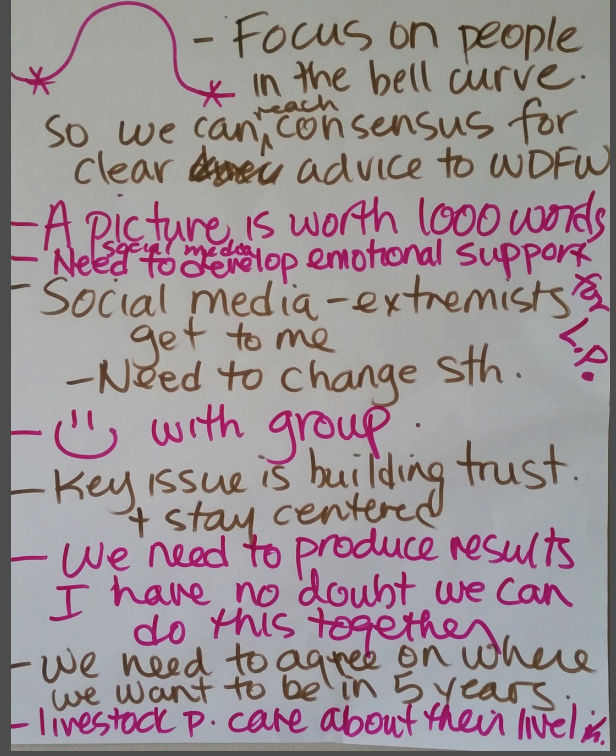 - Focus on people
in the bell curve.
So we can reach consensus for
clear advice to WDFW
- A picture is worth 1000 words
- Need social media to develop emotional support for L.P.
- Social media - extremists
get to me
- Need to change sth.
- with group.
- Key issue is building trust.
+ stay centered
- We need to produce results
I have no doubt we can
do this together
- we need to agree on where
we want to be in 5 years.
- livestock p. care about their liveli h.